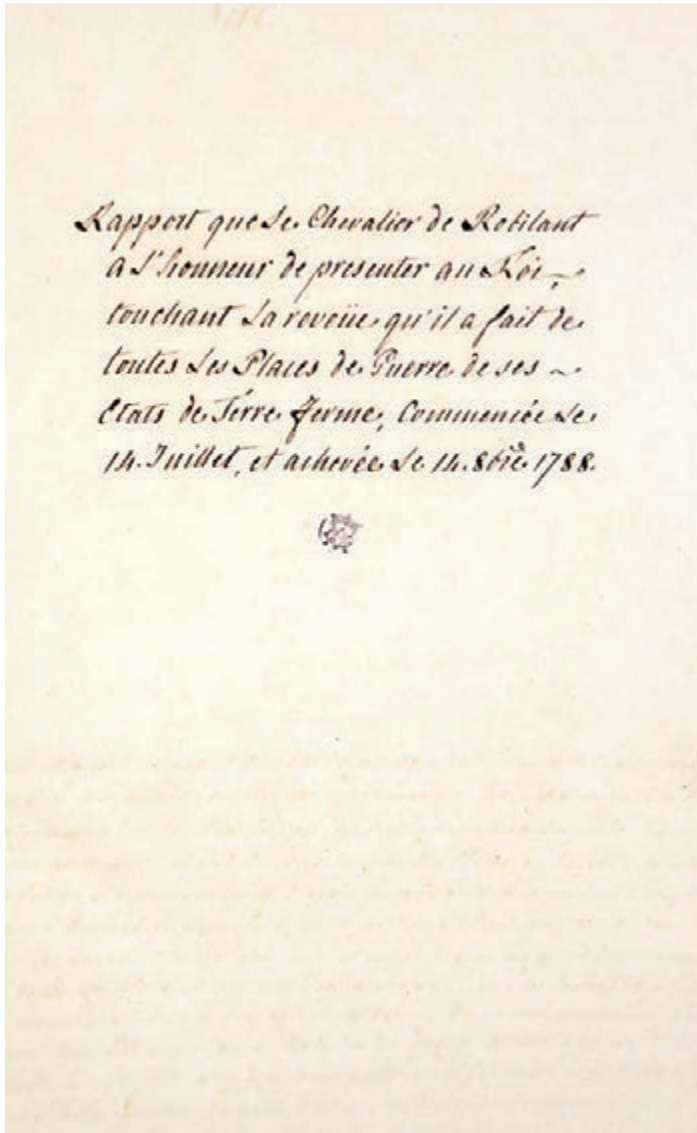 Rapport que Le Chevalier de Robilant
a L'honneur de presenter au Roi,
touchant La revoüe qu'il a fait de
toutes Les Places de Guerre de ses
Etats de Terre ferme, Commencée Le
14. Juillet, et achevée Le 14. 8bre 1788.